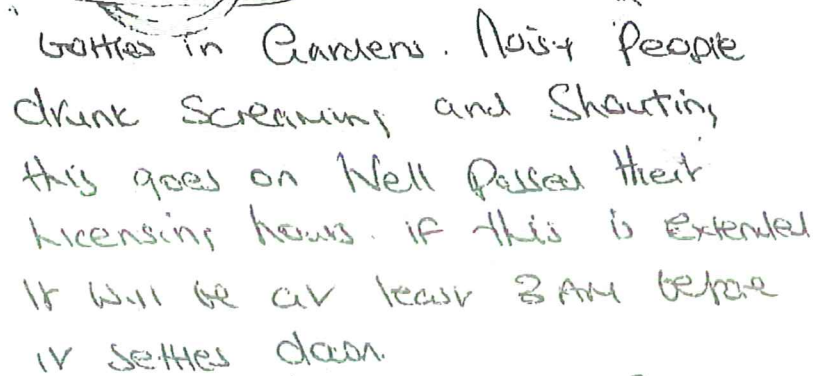 bottles in Gardens. Noisy People
drunk Screaming and Shouting
this goes on Well Passed their
Licensing hours. if this is extended
It Will be at least 3 AM before
it settles down.